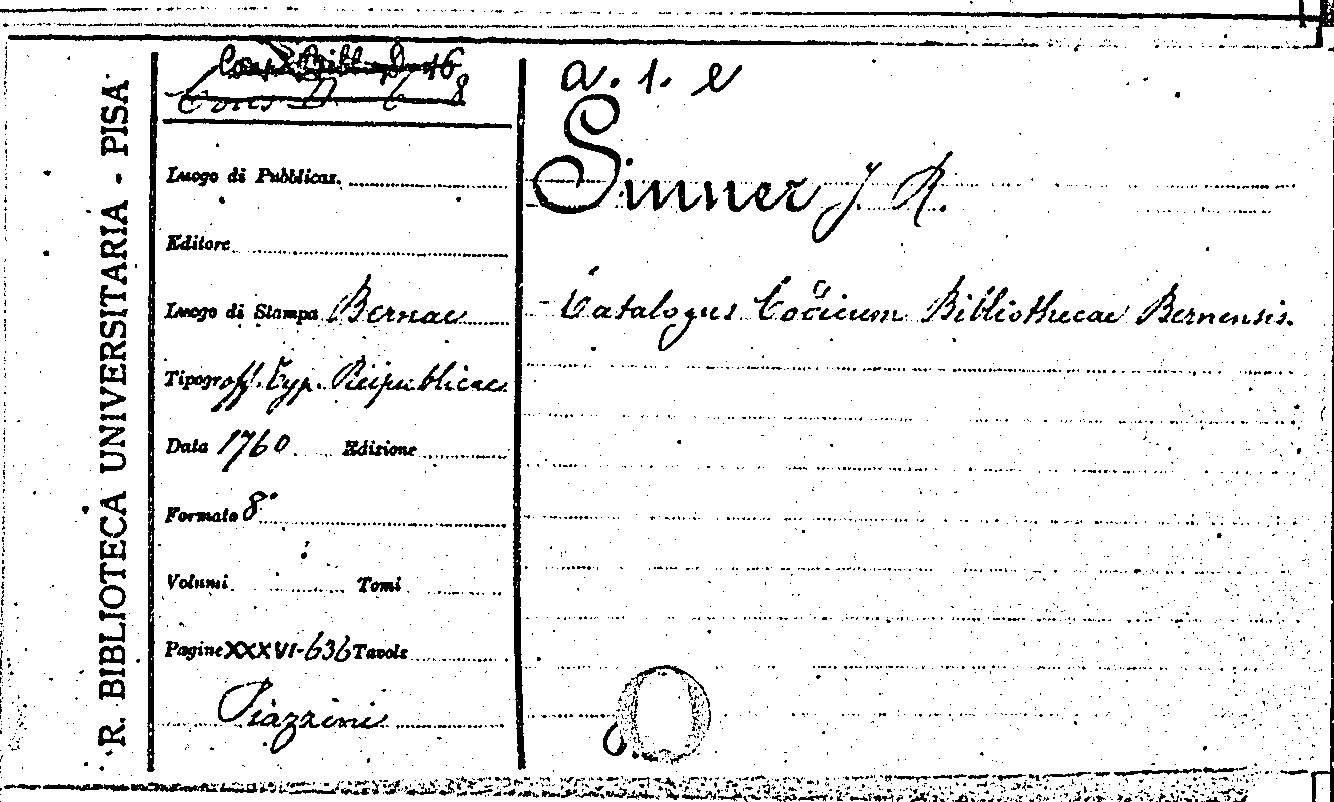 R. BIBLIOTECA UNIVERSITARIA - PISA
Cons D. 6 8
Luogo di Pubblicaz.
Editore
Luogo di Stampa Bernae
Tipogr off. Typ. Reipublicae
Data 1760 Edizione
Formato 8°
Volumi Tomi
Pagine XXXVI-636 Tavole
Piazzini
a. 1. e
Sinner J. R.
- Catalogus Codicum Bibliothecae Bernensis.